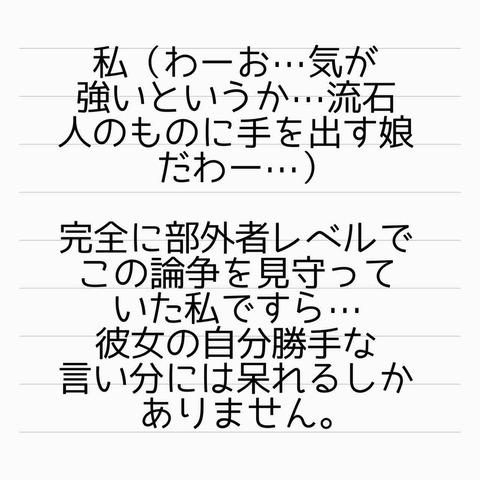 私（わーお…気が
強いというか…流石
人のものに手を出す娘
だわー…）
完全に部外者レベルで
この論争を見守って
いた私ですら…
彼女の自分勝手な
言い分には呆れるしか
ありません。